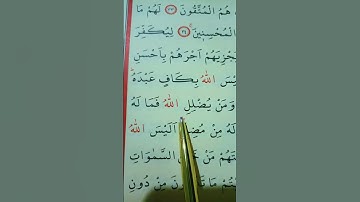 هُمُ الْمُتَّقُونَ ﴿٣٣﴾ لَهُمْ مَا
الْمُحْسِنِينَ ﴿٣٤﴾ لِيُكَفِّرَ
اَجْرَهُمْ بِاَحْسَنِ
اللّٰهُ بِكَافٍ عَبْدَهُ
وَمَنْ يُضْلِلِ اللّٰهُ فَمَا لَهُ
لَهُ مِنْ اَلَيْسَ اللّٰهُ
مَنْ السَّمٰوَاتِ
مِنْ دُونِ